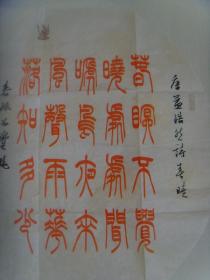 唐孟浩然詩春曉
春眠不覺
曉處處聞
嗁鳥夜來
風聲雨華
落知多少